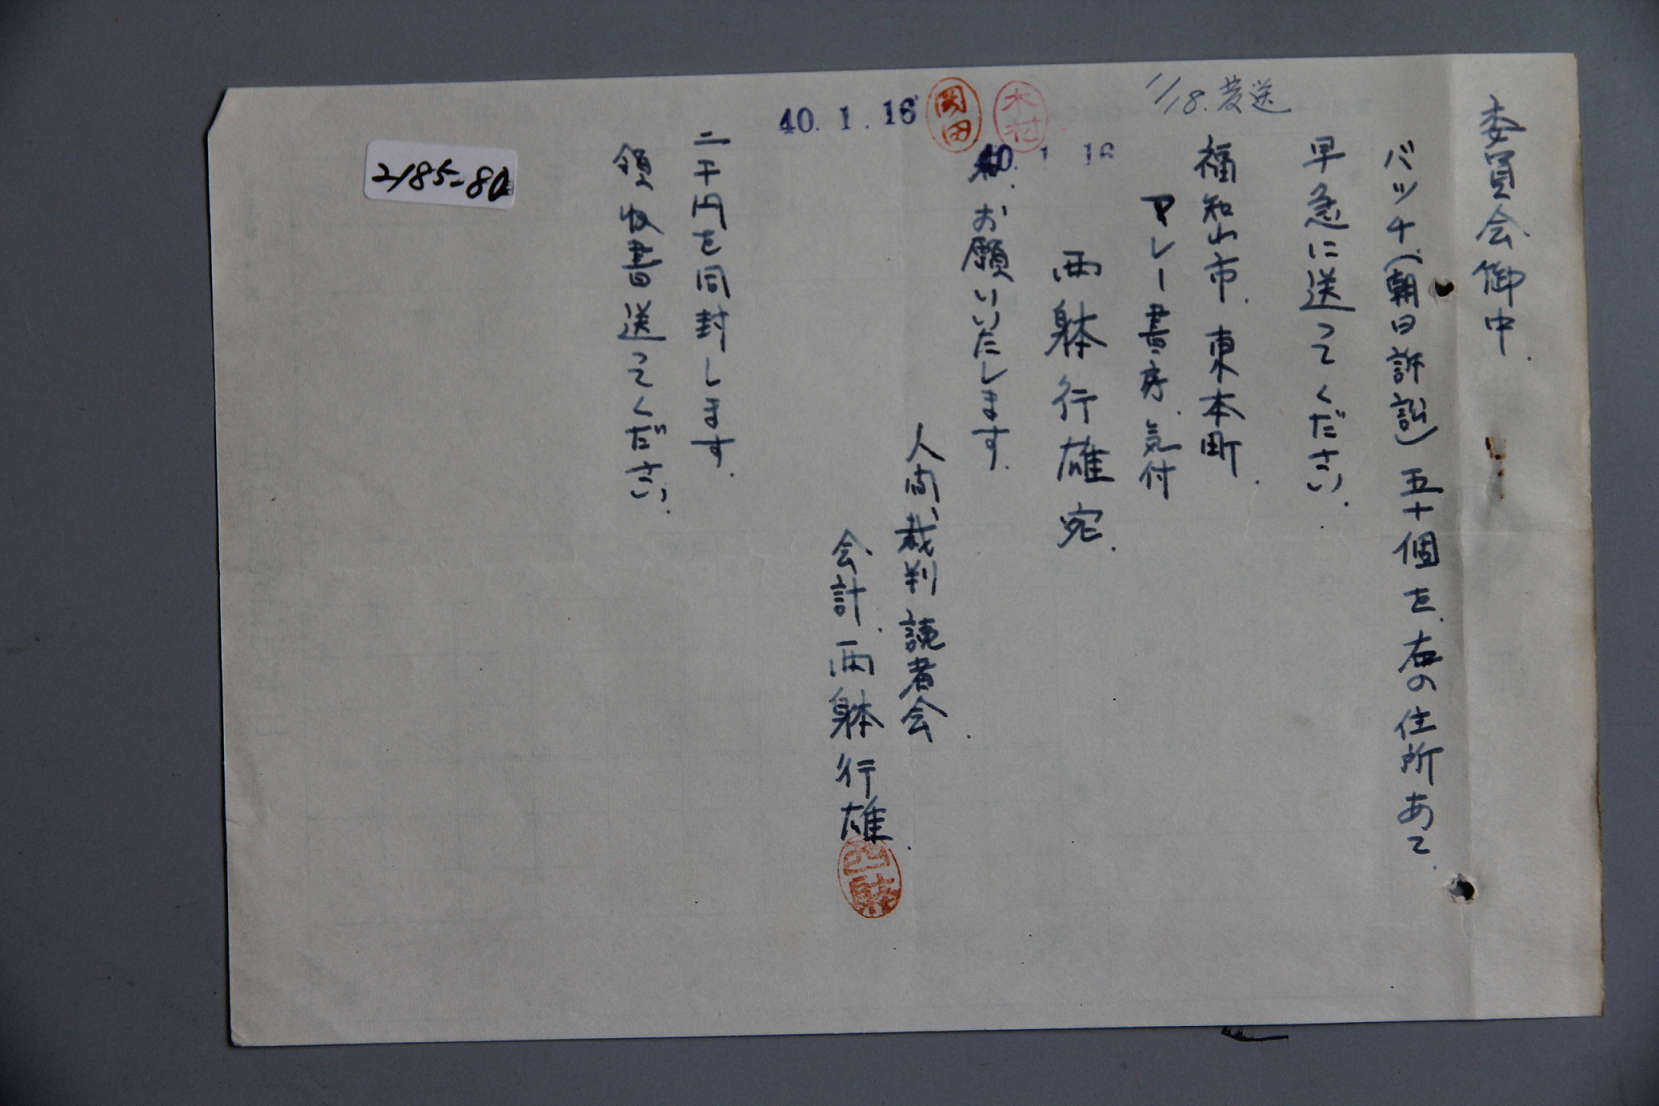 委員会御中.
バッチ(朝日訴訟)五十個を、右の住所あて.
早急に送ってください.
1/18.発送
福知山市.東本町.
マレー書房.気付
両躰行雄宛.
お願いいたします.
木村
40. 1 16
岡田
40. 1. 16
人間裁判読者会.
会計.両躰行雄.
二千円を同封します.
領収書送ってください.
2185-80